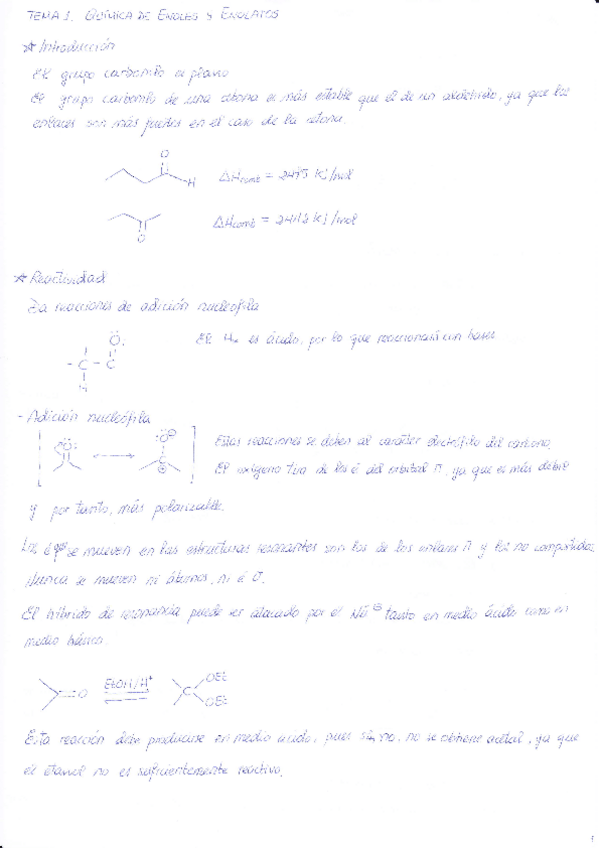 TEMA 1. QUÍMICA DE ENOLES Y ENOLATOS
* Introducción
El grupo carbonilo es plano
El grupo carbonilo de una cetona es más estable que el de un aldehído, ya que los
enlaces son más fuertes en el caso de la cetona.
O
H
ΔHcomb = 2475 KJ/mol
ΔHcomb = 2442 KJ/mol
O
* Reactividad
Da reacciones de adición nucleófila
O
- C - C
H
El Hα es ácido, por lo que reaccionará con bases
- Adición nucleófila
O ⟷ O⊖
⊕
Estas reacciones se deben al carácter electrófilo del carbono.
El oxígeno tira de los é del orbital π, ya que es más débil
y por tanto, más polarizable.
Los é que se mueven en las estructuras resonantes son los de los enlaces π y los no compartidos.
Nunca se mueven ni átomos, ni é σ.
El híbrido de resonancia puede ser atacado por el Nu⊖ tanto en medio ácido como en
medio básico.
=O EtOH/H+ C OEt
OEt
Esta reacción debe producirse en medio ácido, pues si no, no se obtiene acetal, ya que
el etanol no es suficientemente reactivo.